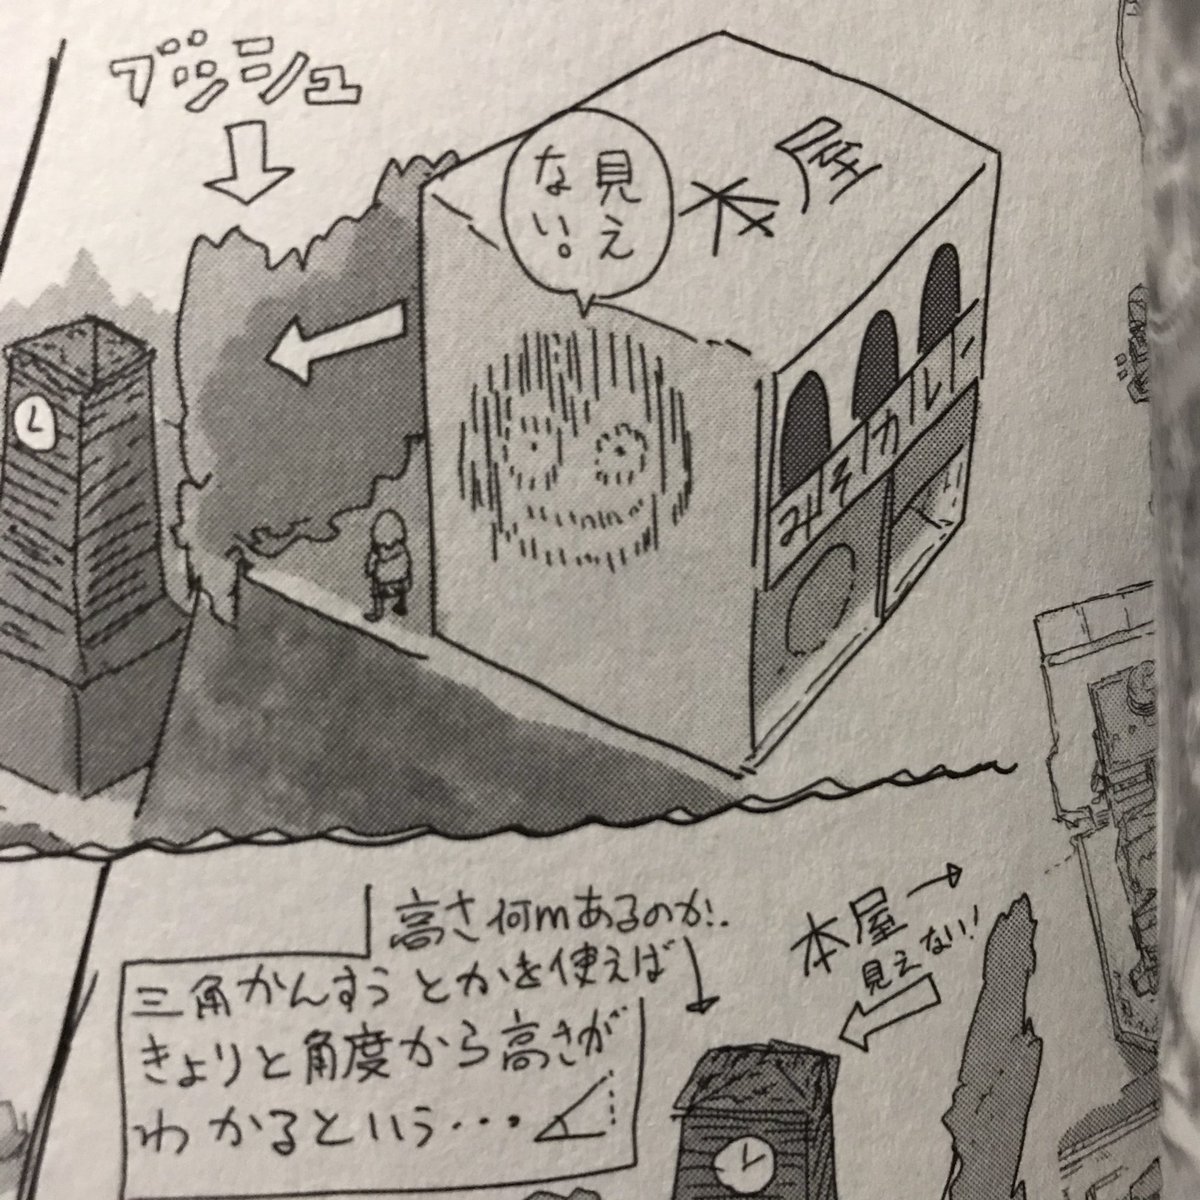 ブッシュ
見え
ない。
本屋
みそカレー
高さ何mあるのか…
三角かんすうとかを使えば
きょりと角度から高さが
わかるという・・・
本屋
見えない!